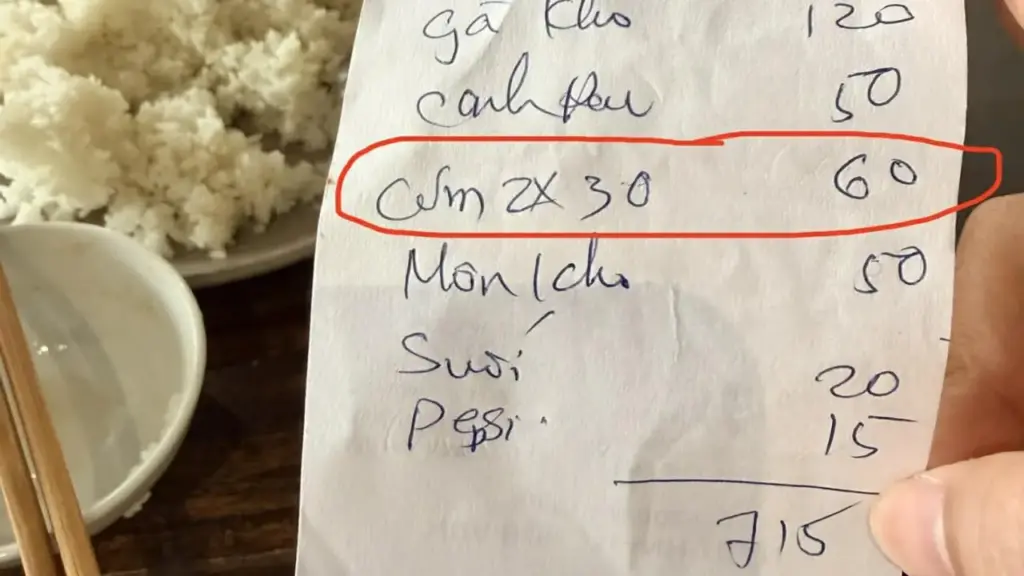 gà kho 120
canh rau 50
cơm 2X30 60
Món 1 cho 50
Suối 20
Pepsi. 15
715